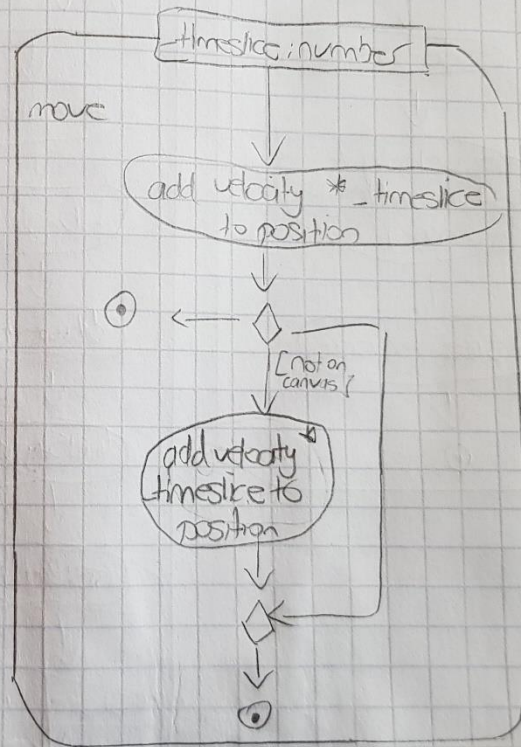 _timeslice: number
move
add velocity * _timeslice
to position
[not on
canvas]
add velocity *
_timeslice to
position